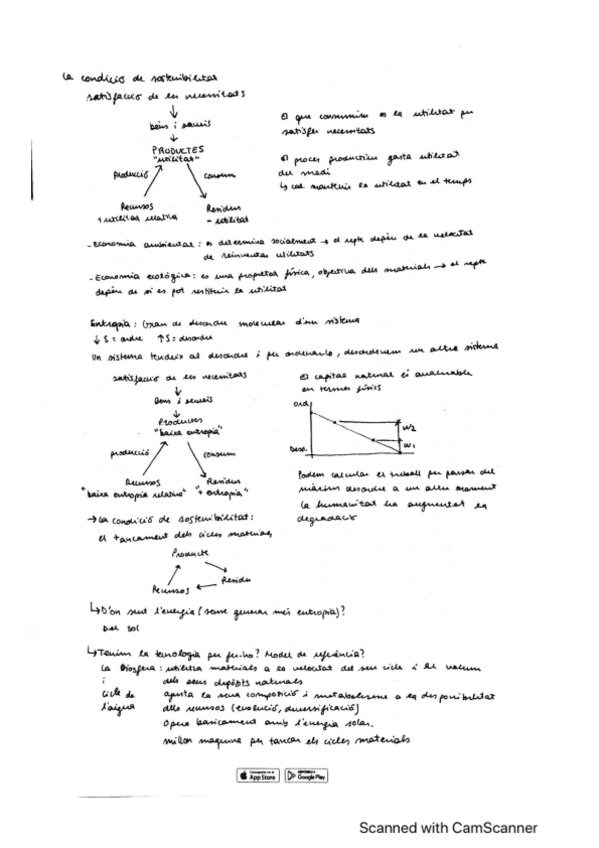 La condició de sostenibilitat
satisfacció de les necessitats
béns i serveis
PRODUCTES
"utilitat"
producció
consum
Recursos
+ utilitat relativa
Residus
- utilitat
El que consumim es la utilitat per
satisfer necessitats
El procés productiu gasta utilitat
del medi
↳ cal mantenir la utilitat en el temps
- Economia ambiental: es determina socialment → el repte depèn de la velocitat
de reinventar utilitats
- Economia ecològica: es una propietat física, objectiva dels materials → el repte
depèn de si es pot restituir la utilitat
Entropia: Grau de desordre molecular d'un sistema
↓ S = ordre ↑ S = desordre
Un sistema tendeix al desordre i per ordenar-lo, desordenem un altre sistema
satisfacció de les necessitats
Béns i serveis
Productes
"baixa entropia"
producció
consum
Recursos
"baixa entropia relativa"
Residus
"+ entropia"
El capital natural és avaluable
en termes físics
Ord.
Deso.
W2
W1
Podem calcular el treball per passar del
màxim desordre a un altre moment
La humanitat ha augmentat la
degradació
→ La condició de sostenibilitat:
el tancament dels cicles materials
Producte
Residu
Recursos
↳ D'on surt l'energia (sense generar més entropia)?
Del sol
↳ Tenim la tecnologia per fer-ho? Model de referència?
La Biosfera: utilitza materials a la velocitat del seu cicle i el volum
i dels seus depòsits naturals
cicle de ajusta la seva composició i metabolisme a la disponibilitat
l'aigua dels recursos (evolució, diversificació)
Opera basicament amb l'energia solar.
millor maquina per tancar els cicles materials
App Store
Google Play
Scanned with CamScanner